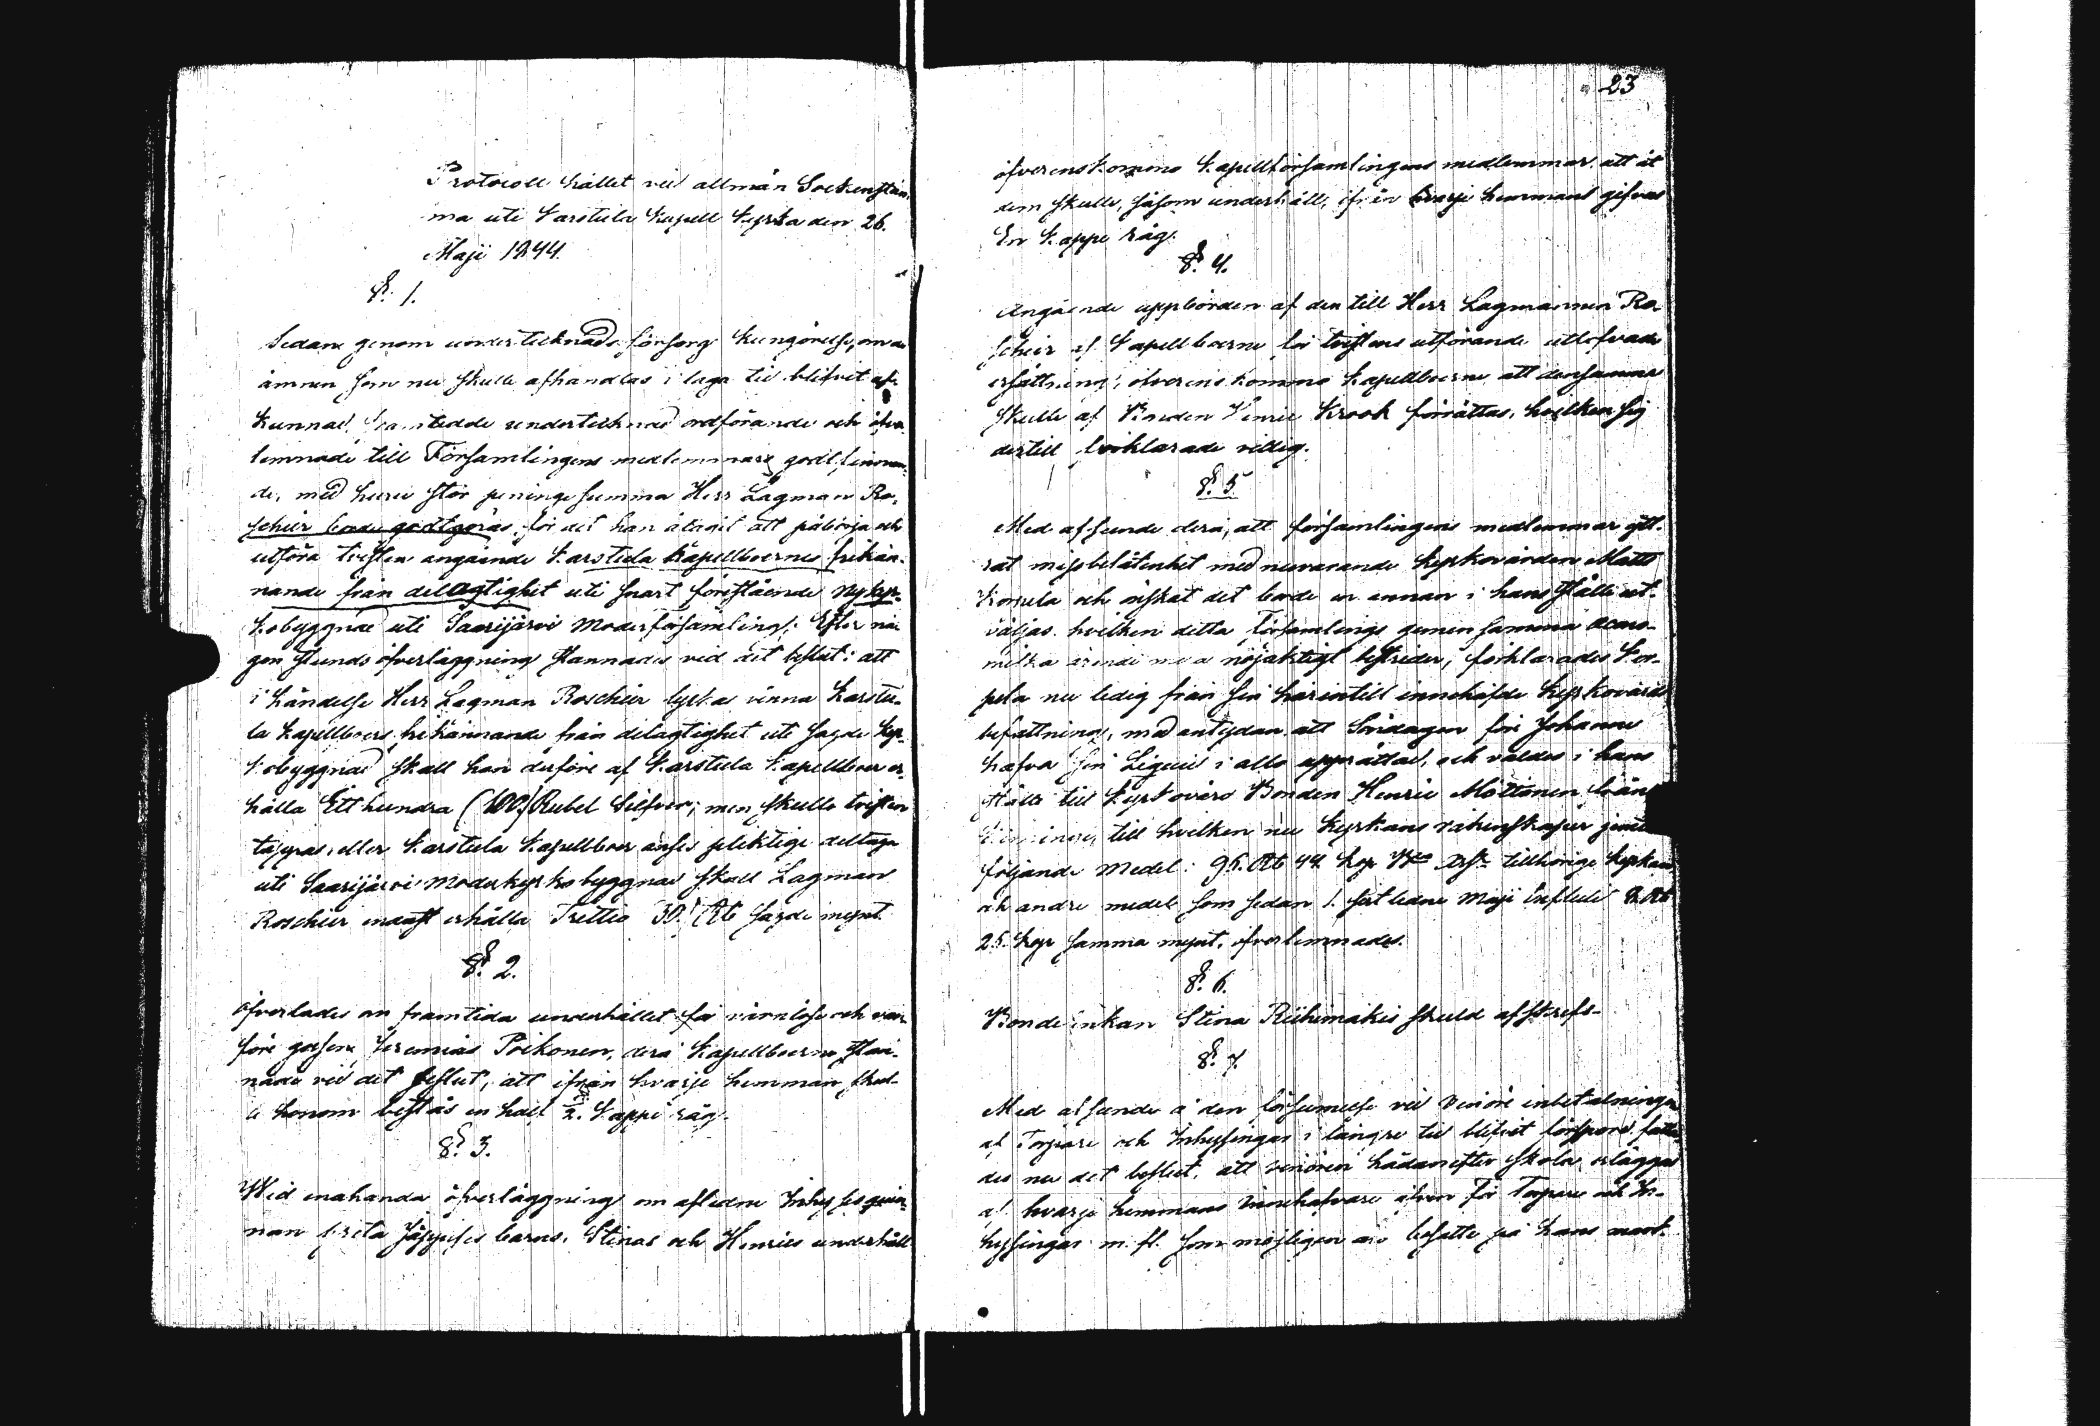 Protocoll hållet vid allmän Sockenstäm,
ma uti Karstula Kapell Kyrka den 26.
Maji 1844.
§. 1.
Sedan genom undertecknads försorg kungörelse, om de
ämnen som nu skulle afhandlas i laga tid blifvit af-
kunnad, framstedde undertecknad ordförande och öfver
lemnade till Församlingens medlemmars godtfinnan-
de, med huru stor peningesumma Herr Lagman Ro-
schier borde godtgöras, för det han åtagit att påbörja och
utföra tvisten angående Karstula Kapellboernes frikän-
nande från delagtighet uti snart förestående Nykyr-
kobyggnad uti Saarijärvi Moderförsamling. Efter nå-
gon stunds öfverläggning stannades vid det beslut: att
i händelse Herr Lagman Roschier lyckas vinna Karstu-
la Kapellboers frikännande från delagtighet uti sagde kyr-
kobyggnad skall han derföre af Karstula Kapellboer er-
hålla Ett hundra (100) Rubel Silfver; men skulle tvisten
tappas, eller Karstula Kapellboer anses pliktige deltaga
uti Saarijärvi Moderkyrko byggnad skall Lagman
Roschier endast erhålla Trettio 30. Rb sagde mynt.
§. 2.
Öfverlades om framtida underhållet för värnlöse och van-
före gossen Jeremias Poikonen, derå Kapellboerne stan-
nade vid det beslut, att ifrån hvarje hemman skul-
le honom bestås en half ½. Kappe råg.
§. 3.
Wid enahanda öfverläggning om aflidne Inhyses qvin-
nan Greta Jäppises barns, Stinas och Henrics underhåll
23
öfverenskommo Kapellförsamlingens medlemmar, att åt
dem skulle, såsom underhåll, ifrån hvarje hemmans gifvas
En Kappe råg.
§. 4.
Angående uppbörden af den till Herr Lagmannen Ro-
schier af Kapellboerne för tvistens utförande utlofvade
ersättning, öfverenskommo Kapellboerne att densamma
skulle af Bonden Henric Krook förrättas, hvilken sig
dertill förklarade villig.
§. 5.
Med afseende derå, att församlingens medlemmar ytt-
rat missbelåtenhet med nuvarande Kyrkovärden Matts
Korpela och önskat det borde en annan i hans ställe ut-
väljas. hvilken detta Församlings gemensamma
ärende nöjaktigt bestrider, förklarades Kor-
pela nu ledig från sin härintill innehafde Kyrkovärds
befattning, med antydan att Söndagen före Johanni
hafva sin Liqvid i allo upprättad, och valdes i hans
ställe till Kyrkovärd Bonden Henric Möttönen från
till hvilken nu Kyrkans räkenskaper jemte
följande Medel: 95. Rb 44 Kop tillhörige Kyrkan
och andre medel som sedan 1. sistledne Maji influtit 8. Rb
25. Kop samma mynt, öfverlemnades.
§. 6.
Bondeenkan Stina Riihimäkis skuld afskrefs.
§. 7.
Med afseende å den försummelse vid inbetalningen
af Torpare och Inhysingar i längre tid blifvit försporde fatta-
des nu det beslut, att hädanefter skola erläggas
af hvarje hemmans Innehafvare äfven för Torpare och In-
hysingar m. fl. som möjligen äro bosatte på hans mark.